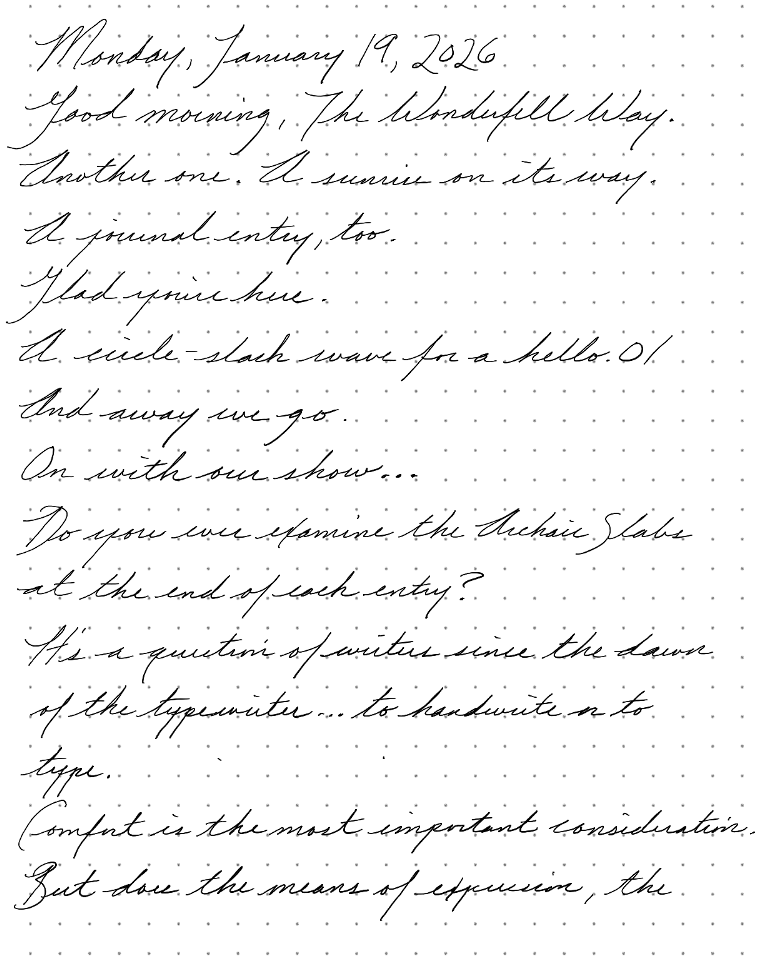 Monday, January 19, 2026
Good morning, The Wonderfell Way.
Another one. A sunrise on its way.
A journal entry, too.
Glad you're here.
A circle-slash wave for a hello. O/
And away we go.
On with our show...
Do you ever examine the Archaic Slabs
at the end of each entry?
It's a question of writers since the dawn
of the typewriter... to handwrite or to
type.
Comfort is the most important consideration.
But does the means of expression, the